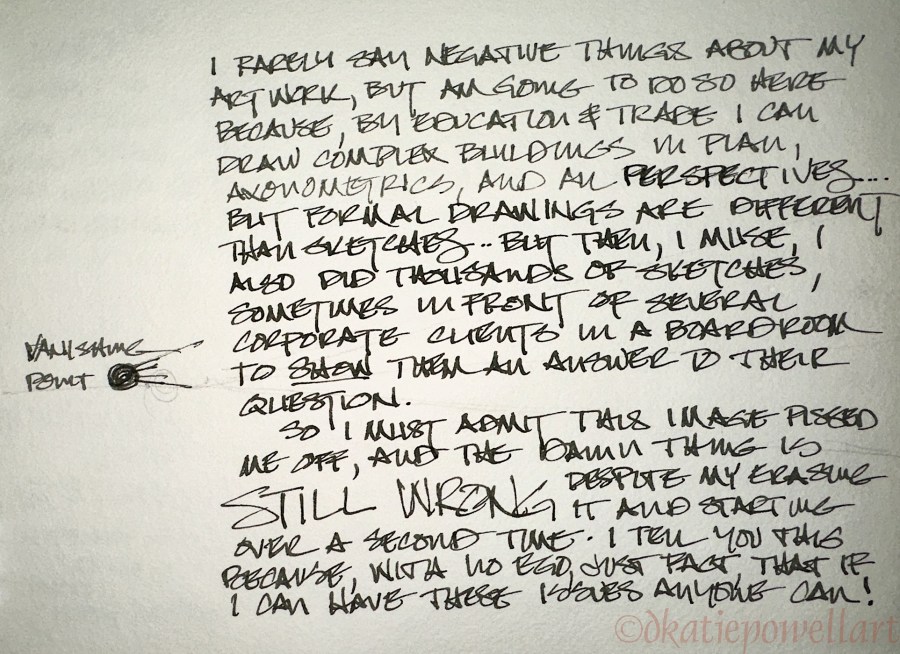 I RARELY SAY NEGATIVE THINGS ABOUT MY
ARTWORK, BUT AM GOING TO DO SO HERE
BECAUSE, BY EDUCATION & TRADE I CAN
DRAW COMPLEX BUILDINGS IN PLAN,
AXONOMETRICS, AND AN PERSPECTIVES....
BUT FORMAL DRAWINGS ARE DIFFERENT
THAN SKETCHES... BUT THEN, I MUSE, I
ALSO DID THOUSANDS OF SKETCHES,
SOMETIMES IN FRONT OF SEVERAL
CORPORATE CLIENTS IN A BOARDROOM
TO SHOW THEM AN ANSWER TO THEIR
QUESTION.
VANISHING
POINT
SO I MUST ADMIT THIS IMAGE PISSED
ME OFF, AND THE DAMN THING IS
STILL WRONG DESPITE MY ERASING
IT AND STARTING
OVER A SECOND TIME. I TELL YOU THIS
BECAUSE, WITH NO EGO, JUST FACT THAT IF
I CAN HAVE THESE ISSUES ANYONE CAN!
©dkatiepowellart